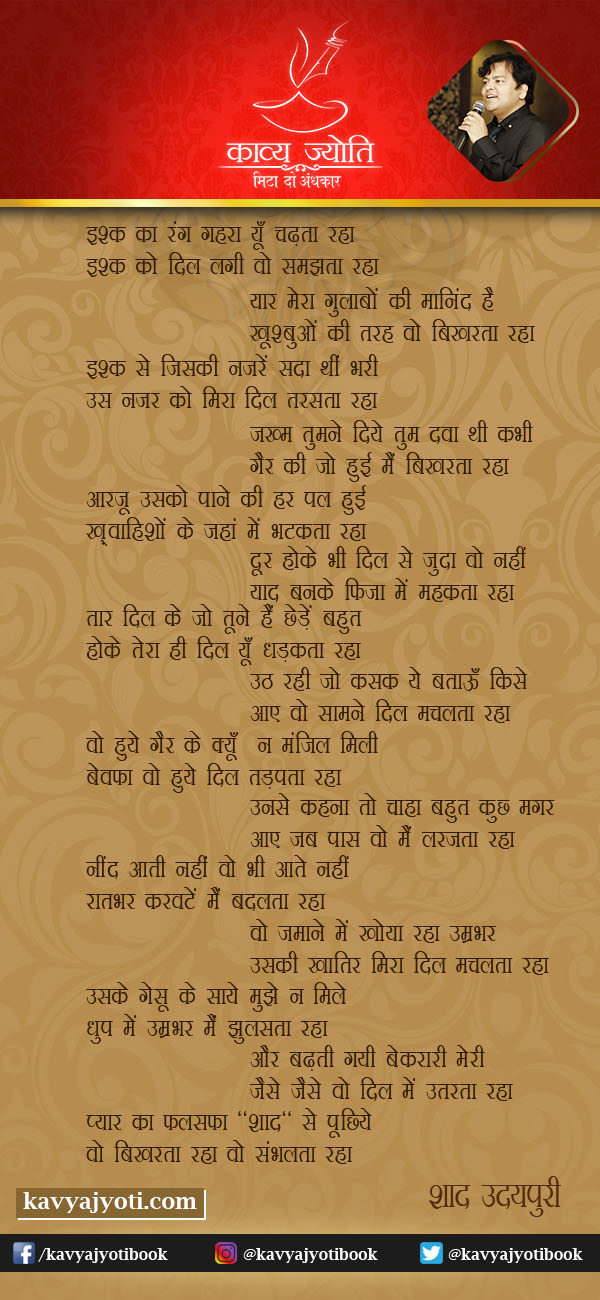 काव्य ज्योति
मिटा दो अंधकार
इश्क का रंग गहरा यूँ चढ़ता रहा
इश्क को दिल लगी वो समझता रहा
यार मेरा गुलाबों की मानिंद है
खूश्बुओं की तरह वो बिखरता रहा
इश्क से जिसकी नजरें सदा थीं भरी
उस नजर को मिरा दिल तरसता रहा
जख्म तुमने दिये तुम दवा थी कभी
गैर की जो हुई मैं बिखरता रहा
आरजू उसको पाने की हर पल हुई
ख़्वाहिशों के जहां में भटकता रहा
दूर होके भी दिल से जुदा वो नहीं
याद बनके फिजा में महकता रहा
तार दिल के जो तूने हैं छेड़ें बहुत
होके तेरा ही दिल यूँ धड़कता रहा
उठ रही जो कसक ये बताऊँ किसे
आए वो सामने दिल मचलता रहा
वो हुये गैर के क्यूँ न मंजिल मिली
बेवफा वो हुये दिल तड़पता रहा
उनसे कहना तो चाहा बहुत कुछ मगर
आए जब पास वो मैं लरजता रहा
नींद आती नहीं वो भी आते नहीं
रातभर करवटें मैं बदलता रहा
वो जमाने में खोया रहा उम्रभर
उसकी खातिर मिरा दिल मचलता रहा
उसके गेसू के साये मुझे न मिले
धुप में उम्रभर मैं झुलसता रहा
और बढ़ती गयी बेकरारी मेरी
जैसे जैसे वो दिल में उतरता रहा
प्यार का फलसफा “शाद“ से पूछिये
वो बिखरता रहा वो संभलता रहा
शाद उदयपुरी
kavyajyoti.com
/kavyajyotibook @kavyajyotibook @kavyajyotibook